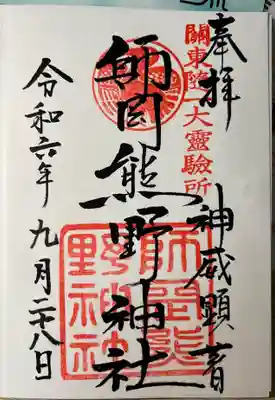 奉拝
關東隨一大靈驗所
神威顕音
師岡熊野神社
師岡熊
野神社
令和六年九月二十八日